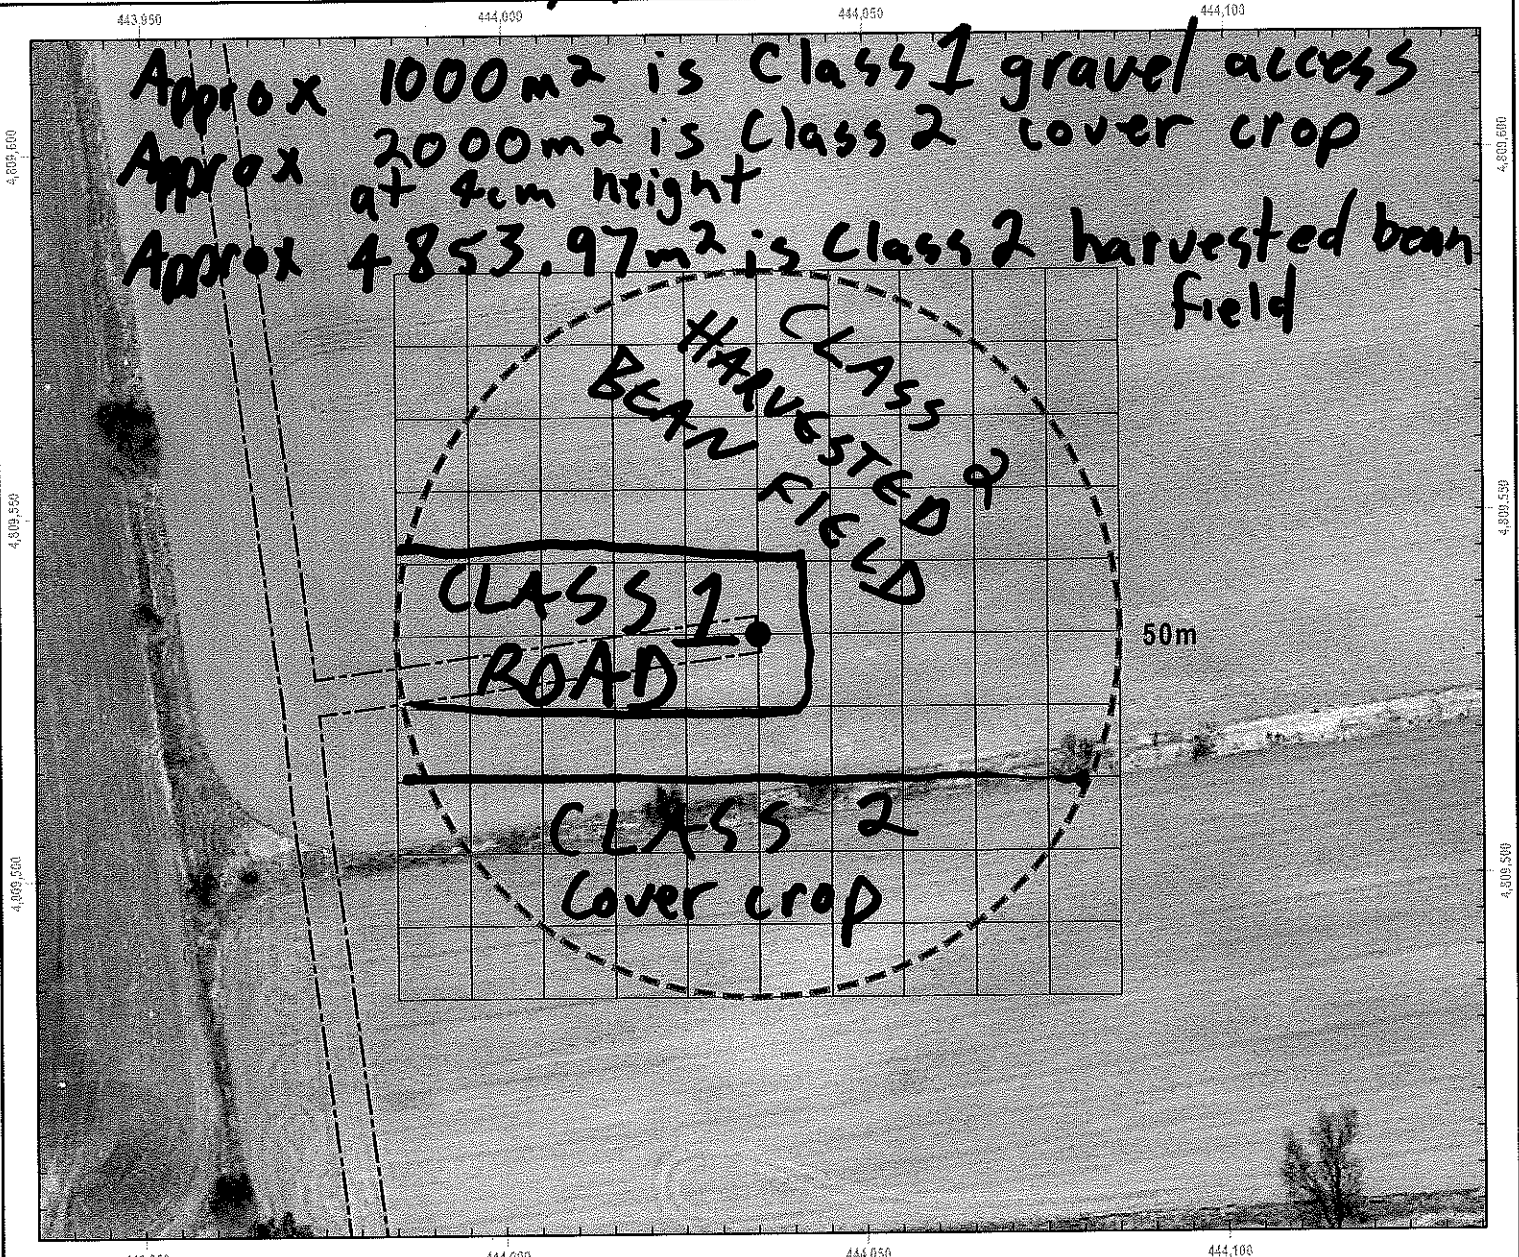 443,950 444,000 444,050 444,100
Approx 1000m² is Class 1 gravel access
4,809,600 4,809,600
Approx 2000m² is Class 2 cover crop
at 4cm height
Approx 4853.97m² is Class 2 harvested bean
field
CLASS 2
HARVESTED
BEAN FIELD
4,809,550 4,809,550
CLASS 1
ROAD
50m
CLASS 2
Cover crop
4,809,500 4,809,500
444,050 444,100